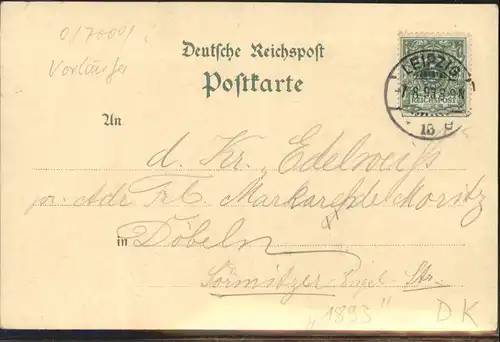 0/7000/
Vorläufer
Deutsche Reichspost
Postkarte
LEIPZIG
REICHSPOST
An
d. Kr. „Edelweiß
pr. Adr. Frl. Markar de Moritz
in Döbeln
Sörmitzer Str.
„1893"
DK